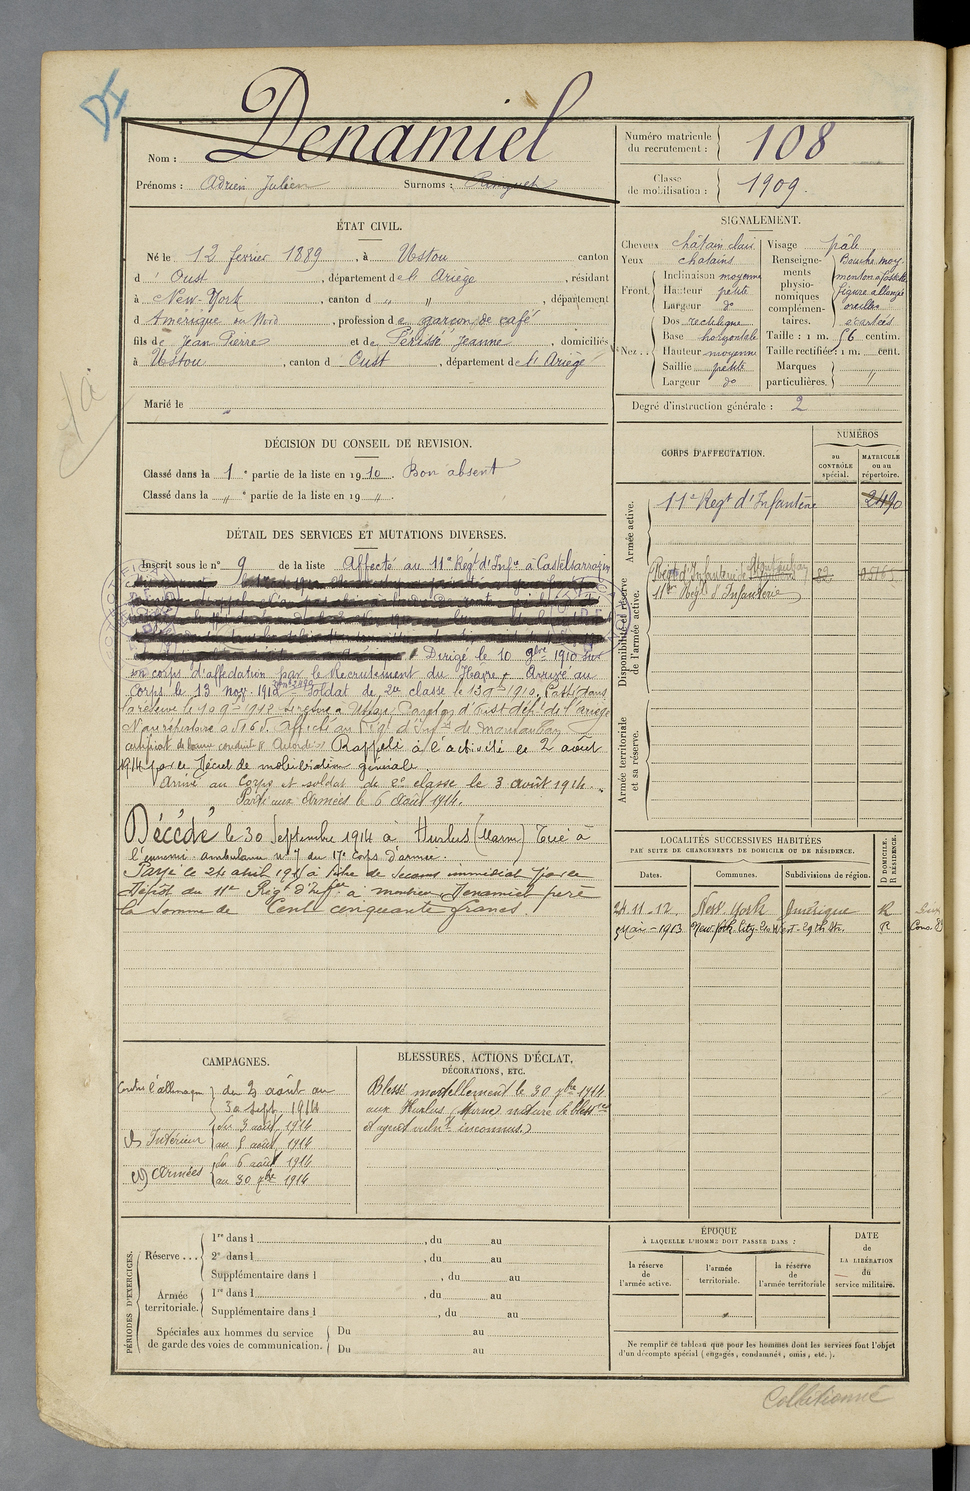 Nom : Denamiel
Prénoms : Adrien Julien Surnoms :
Numéro matricule du recrutement : 108
Classe de mobilisation : 1909.
ÉTAT CIVIL.
Né le 12 février 1889, à Ustou canton
d'Oust, département de l'Ariège, résidant
à New-York, canton d " ", département
d Amérique du Nord, profession de garçon de café
fils de Jean Pierre et de Périsse Jeanne, domiciliés
à Ustou, canton d Oust, département de l'Ariège
Marié le "
SIGNALEMENT.
Cheveux châtain clair
Yeux chatains
Front. Inclinaison moyenne
Hauteur petite
Largeur do
Nez . . Dos rectiligne
Base horizontale
Hauteur moyenne
Saillie petite
Largeur do
Visage pâle
Renseignements physionomiques complémentaires. Bouche moy. menton à fossette figure allongée oreilles écartées
Taille : 1 m. 56 centim.
Taille rectifiée : 1 m. cent.
Marques particulières. "
Degré d'instruction générale : 2
DÉCISION DU CONSEIL DE REVISION.
Classé dans la 1e partie de la liste en 1910. Bon absent
Classé dans la " e partie de la liste en 19 ".
CORPS D'AFFECTATION.
NUMÉROS
au CONTRÔLE spécial.
MATRICULE ou au répertoire.
Armée active.
11e Regt d'Infanterie 2490
Disponibilité et réserve de l'armée active.
Regt d'Infanterie de Montauban
11e Regt d'Infanterie
Armée territoriale et sa réserve.
DÉTAIL DES SERVICES ET MUTATIONS DIVERSES.
Inscrit sous le no 9 de la liste Affecté au 11e Régt d'Infie à Castelsarrasin
Dirigé le 10 9bre 1910 sur
son corps d'affectation par le Recrutement du Havre. Arrivé au
Corps le 13 nov. 1910 Soldat de 2e classe le 13 1910. Passé dans
la réserve le 1912 se retire à Ustou Canton d'Oust dépt de l'Ariège
No au répertoire Affecté au Régt d'Infie de Montauban
certificat de bonne conduite Accordé. Rappelé à l'activité le 2 août
1914 par le Décret de mobilisation générale.
Arrivé au Corps et soldat de 2e classe le 3 août 1914.
Parti aux Armées le 6 août 1914.
Décédé le 30 Septembre 1914 à Hurlus (Marne) Tué à
l'ennemi. ambulance no 7 du 17e Corps d'armée.
Payé le 24 avril à titre de secours immédiat par le
Dépôt du 11e Régt d'Infrie à monsieur Denamiel père
la somme de Cent cinquante francs.
LOCALITÉS SUCCESSIVES HABITÉES
PAR SUITE DE CHANGEMENTS DE DOMICILE OU DE RÉSIDENCE.
Dates. Communes. Subdivisions de région. D DOMICILE. R RÉSIDENCE.
24.11-12. New. York Amérique R
Mai-1913 New-York City West. 29th Str. R
CAMPAGNES.
Contre l'allemagne du 2 août au
30 Sept. 1914
Intérieur du 3 août 1914
au 5 août 1914
Armées du 6 août 1914
au 30 7bre 1914
BLESSURES, ACTIONS D'ÉCLAT,
DÉCORATIONS, ETC.
Blessé mortellement le 30 7bre 1914
aux Hurlus (Marne) nature de bless res
et agent vulnt inconnus.)
PÉRIODES D'EXERCICES.
Réserve . . . 1re dans l , du au
2e dans l , du au
Supplémentaire dans l , du au
Armée territoriale. 1re dans l , du au
Supplémentaire dans l , du au
Spéciales aux hommes du service de garde des voies de communication. Du au
Du au
ÉPOQUE
À LAQUELLE L'HOMME DOIT PASSER DANS :
la réserve de l'armée active.
l'armée territoriale.
la réserve de l'armée territoriale
DATE de LA LIBÉRATION du service militaire.
Ne remplir ce tableau que pour les hommes dont les services font l'objet
d'un décompte spécial (engagés, condamnés, omis, etc.).
Collationné